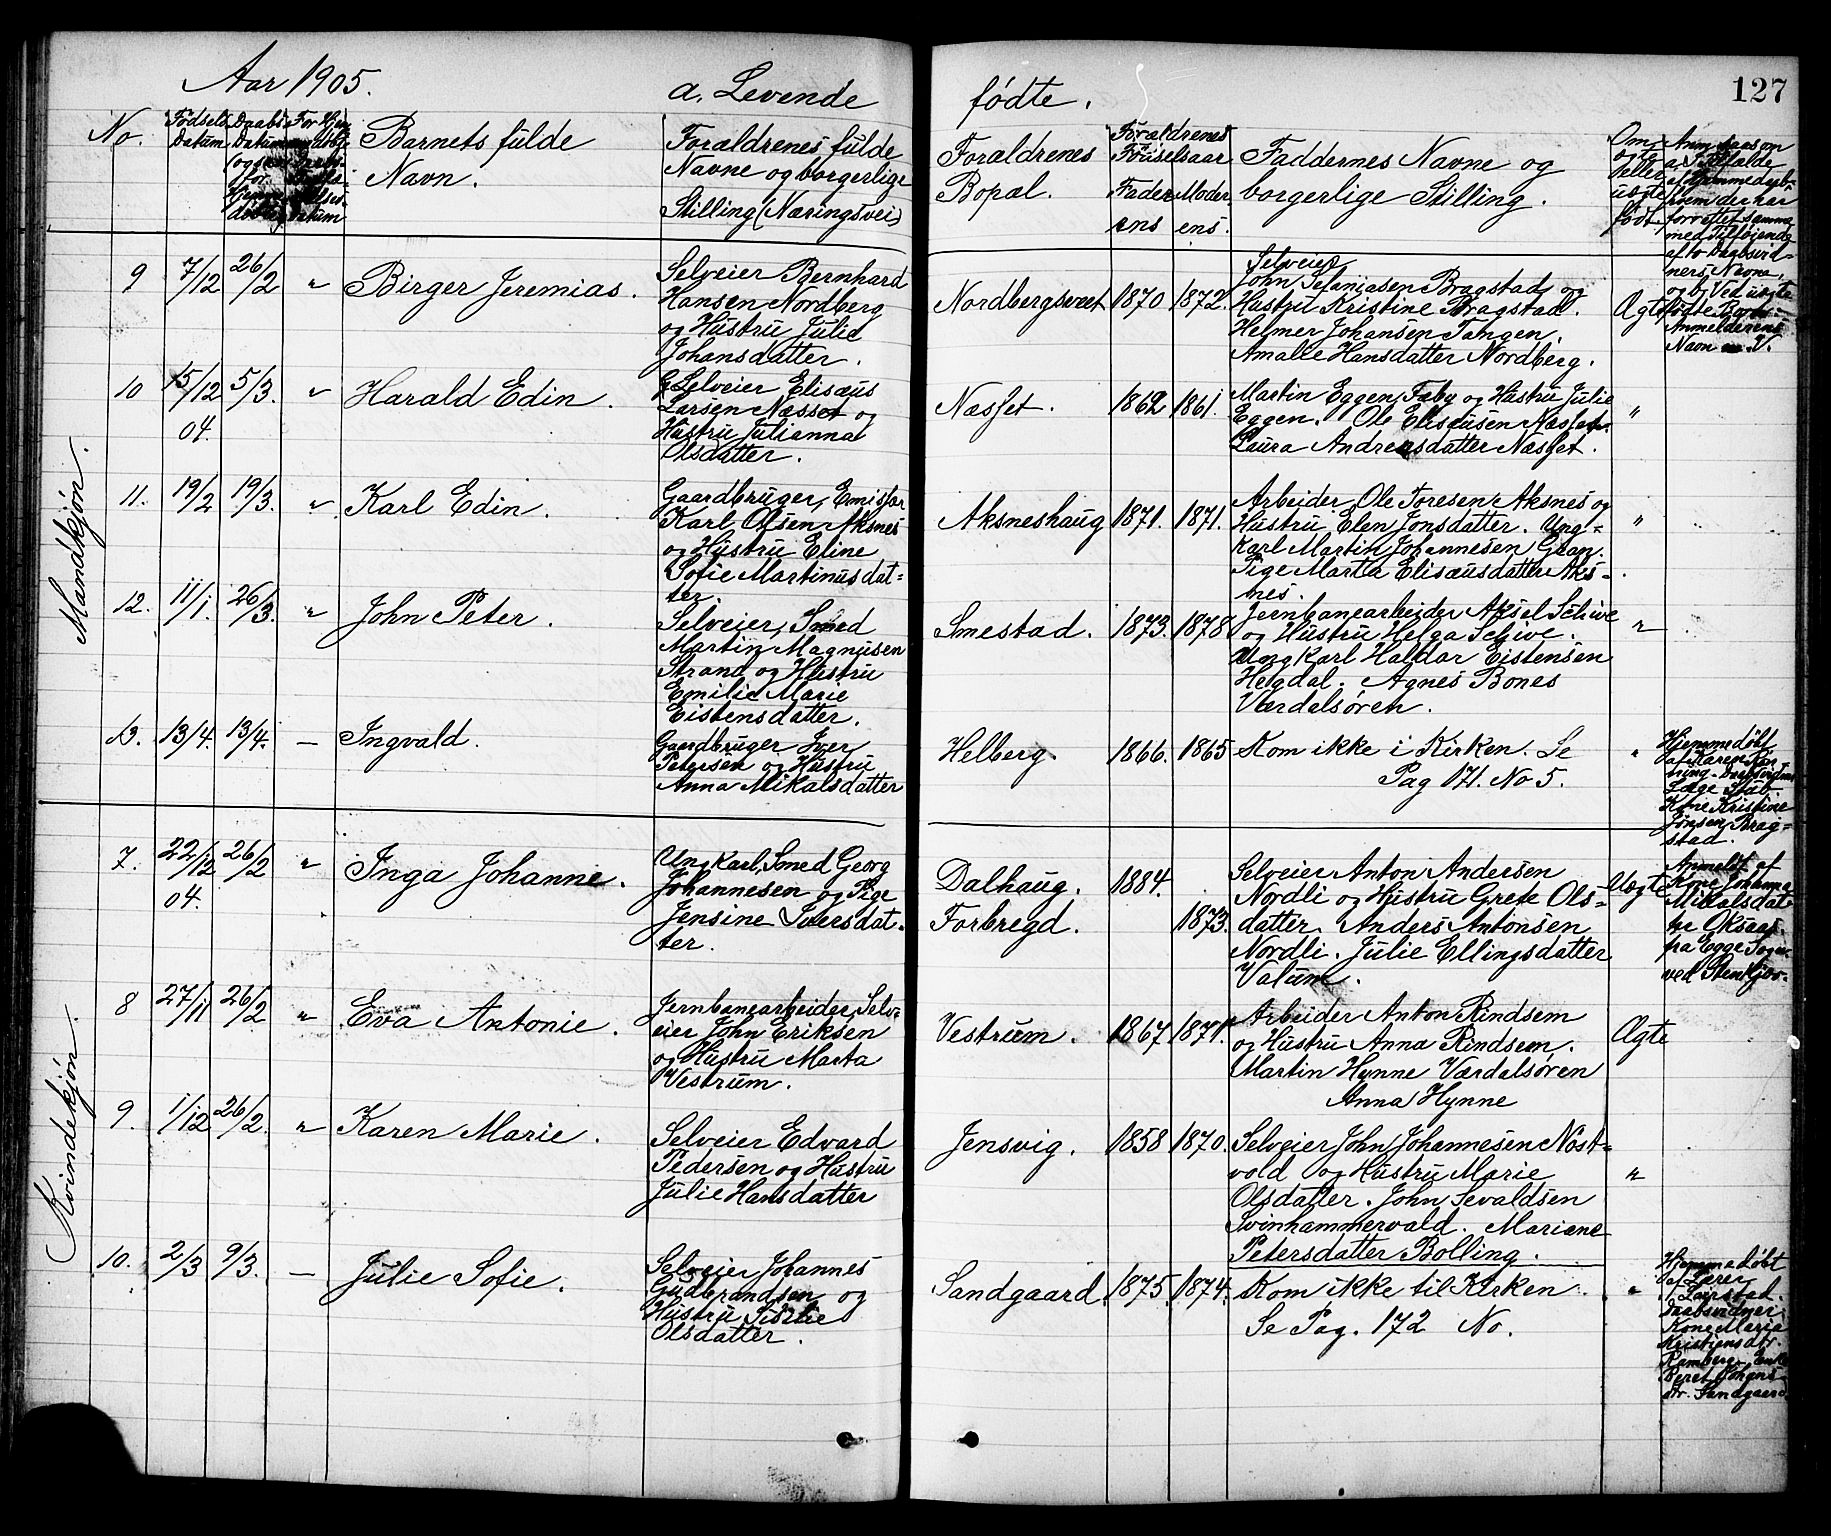 Aar 1905.
a. Levende
fødte.
127
No.
Fødsels
Datum
Daabs
Datum
Barnets fulde
Navn.
Forældrenes fulde
Navne og borgerlige
Stilling (Næringsvei)
Forældrenes
Bopæl.
Forældrenes
Fødselsaar
Faderens
Moderens.
Faddernes Navne og
borgerlige Stilling.
Om
eller
uægte
født.
Mandkjøn.
9
7/12
26/2
"
Birger Jeremias.
Selveier Bernhard
Hansen Nordberg
og Hustru Julie
Johansdatter.
Nordbergsvæt
1870
1872.
Selveier
John Bragstad og
Hustru Kristine Bragstad.
Helmer Johansen Tangen.
Amalie Hansdatter Nordberg.
Ægte
10
15/12
04.
5/3.
"
Harald Edin.
Selveier Elisæus
Larsen Næsset og
Hustru Julianna
Olsdatter.
Næsset.
1862
1861.
Martin Eggen, Fæby og Hustru Julie
Eggen. Ole Elisæusen Næsset.
Laura Andreasdatter Næsset.
"
11.
19/2
19/3.
"
Karl Edin.
Gaardbruger, Emisfar
Karl Olsen Aksnes
og Hustru Eline
Sofie Martinusdat=
ter.
Aksneshaug
1871.
1871.
Arbeider Ole Toresen Aksnes og
Hustru Elen Jonsdatter. Ung=
karl Martin Johannesen Gran.
Pige Marta Elisæusdatter Aks=
nes.
"
12.
11/1.
26/3.
"
John Peter.
Selveier, Smed
Martin Magnusen
Strand og Hustru
Emilie Marie
Eistensdatter.
Smestad.
1873.
1878
Jernbanearbeider Aksel Schive
og Hustru Helga Schive.
Ungkarl Haldor Eistensen
Helgdal. Agnes Bones
Værdalsøren.
"
13.
13/4.
13/4.
—
Ingvald.
Gaardbruger Iver
Petersen og Hustru
Anna Mikalsdatter
Helberg.
1866.
1865
Kom ikke i Kirken. Se
Pag 171. No 5.
"
Hjemmedøbt
Læge Stub.
Kone Kristine
Jønsen, Brag=
stad.
Kvindekjøn.
7.
22/12
04.
26/2
"
Inga Johanne.
Ungkarl, Smed Georg
Johannesen og Pige
Jensine Iversdat=
ter.
Dalhaug.
Forbregd.
1884.
1873.
Selveier Anton Andersen
Nordli og Hustru Grete Ols=
datter. Anders Antonsen
Nordli. Julie Ellingsdatter
Valum.
Uægte
Anmeldt af
Kone Johanna
Mikalsdat=
ter Oksaas
fra Egge Sogn
ved Stenkjær.
8
27/11
26/2
"
Eva Antonie.
Jernbanearbeider, Selv=
eier John Eriksen
og Hustru Marta
Vestrum.
Vestrum.
1867
1871.
Arbeider Anton Rindsem
og Hustru Anna Rindsem.
Martin Hynne Værdalsøren
Anna Hynne
Ægte
9.
1/12
26/2.
"
Karen Marie.
Selveier Edvard
Pedersen og Hustru
Julie Hansdatter
Jensvig.
1858
1870.
Selveier John Johannesen Nøst=
vold og Hustru Marie
Olsdatter. John Sevaldsen
Svinhammervald. Mariane
Petersdatter Bolling.
"
10.
2/3
9/3.
—
Julie Sofie.
Selveier Johannes
Gudbrandsen og
Hustru
Olsdatter.
Sandgaard
1875
1874.
Kom ikke til Kirken.
Se Pag. 172 No.
"
Hjemmedøbt
af Lærer
Kone Marie
Kristiensdtr.
Ramberg. Enke
Beret Johans=
dtr. Sandgaard